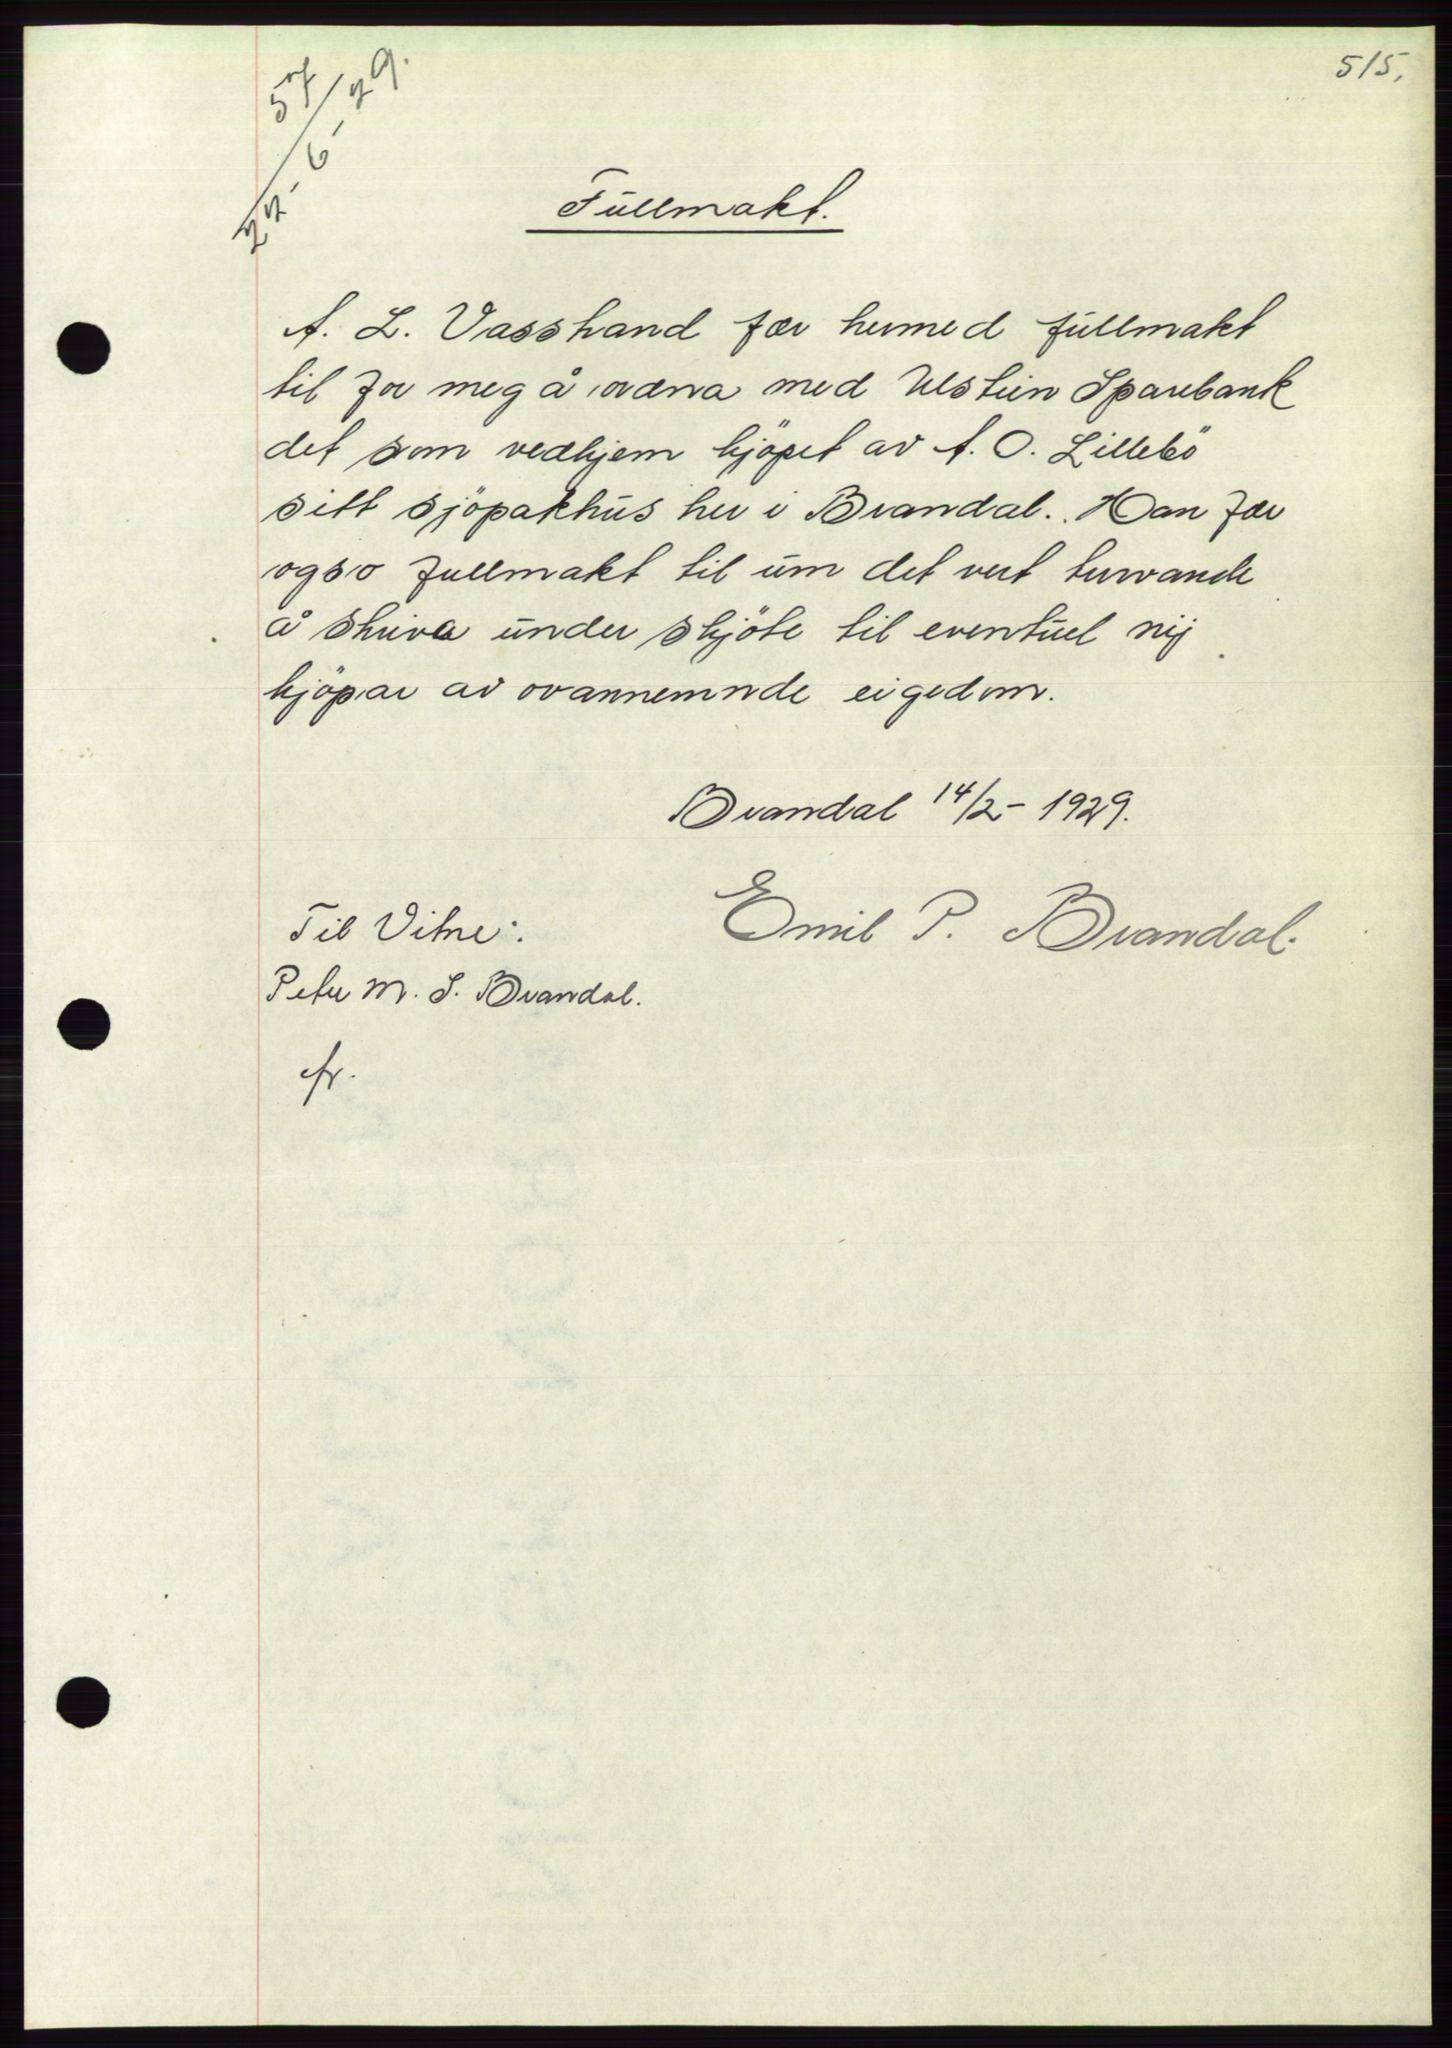 515.
Fullmakt.
A. L. Vasstrand fær hermed fullmakt
til for meg å ordna med Ulstein Sparebank
det som vedkjem kjöpet av A. O. Lillebö
sitt sjöpakhus her i Brandal. Han fær
ogso fullmakt til um det vert turvande
å skriva under skjöte til eventuel nij
kjöpar av ovannemnde eigedom.
Brandal 14/2- 1929.
Til Vitne:
Emil P. Brandal.
Peter M. S. Brandal.